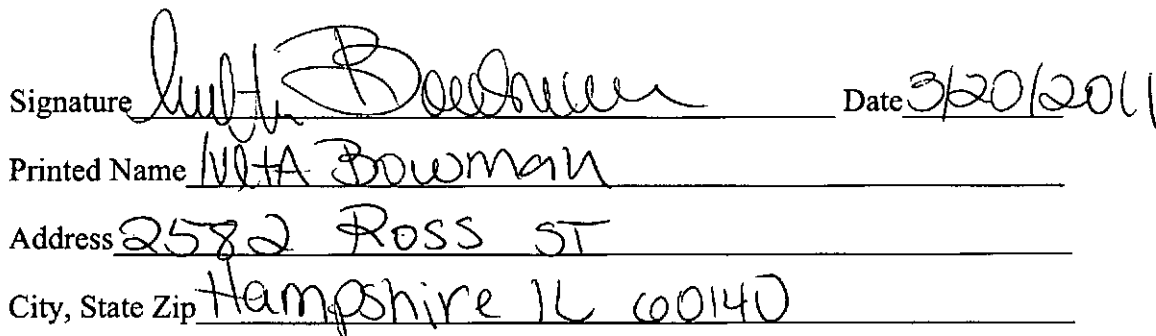 Signature Bowman Date 3/20/2011
Printed Name Bowman
Address 2582 Ross ST
City, State Zip Hampshire IL 60140